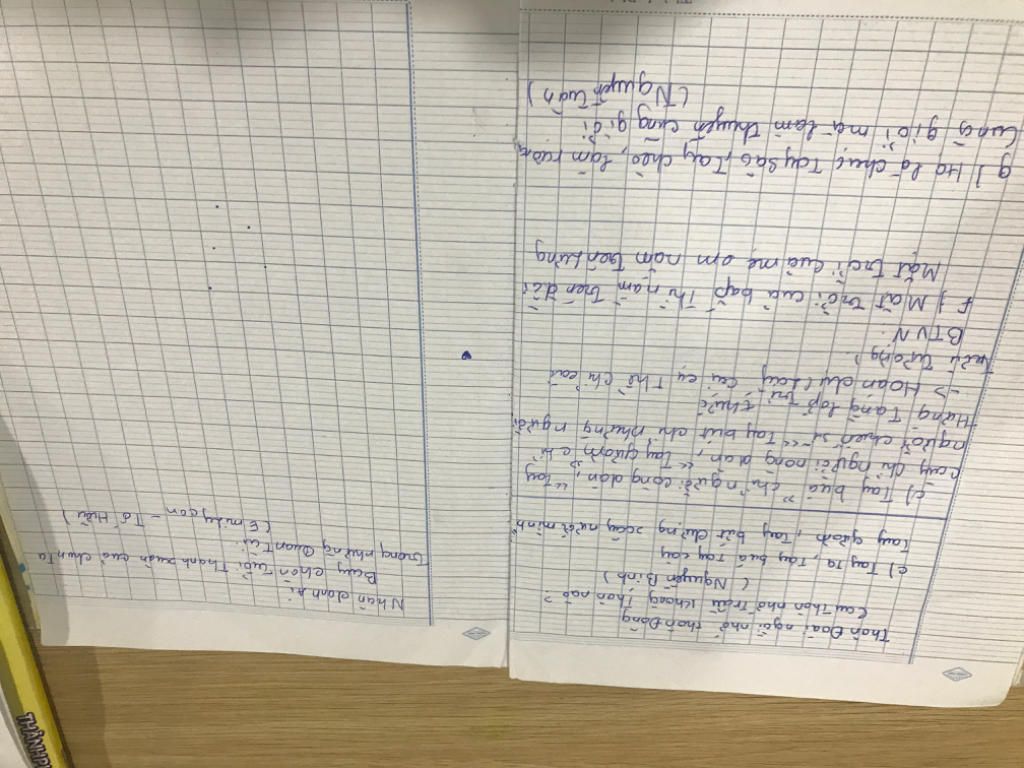 Thôn Đoài ngồi nhớ thôn Đông
Cau thôn nhớ trầu không thôn nào?
( Nguyễn Bính )
e) Tay ta, tay búa tay cày
Tay gươm, tay bút dựng xây nước mình
c) Tay búa" chỉ người công dân, "Tay
cày chỉ người nông dân, "Tay gươm chỉ
người chiến sĩ "Tay bút chỉ những người
thường tầng lớp trí thức
-> Hoán dụ (lấy cái cụ thể chỉ cái
trừu tượng)
BTVN:
f) Mặt trời của bắp thì nằm trên đồi
Mặt trời của mẹ em nằm trên lưng
g) Họ là chục tay sào, tay chèo, làm ruộng
cũng giỏi mà làm thuyền cũng giỏi
( Nguyễn Tuân )
Nhân danh ai
Bay chôn tuổi thanh xuân của chún ta
Trong những quan tài
( Emily con - Tố Hữu )
THÀNHPH